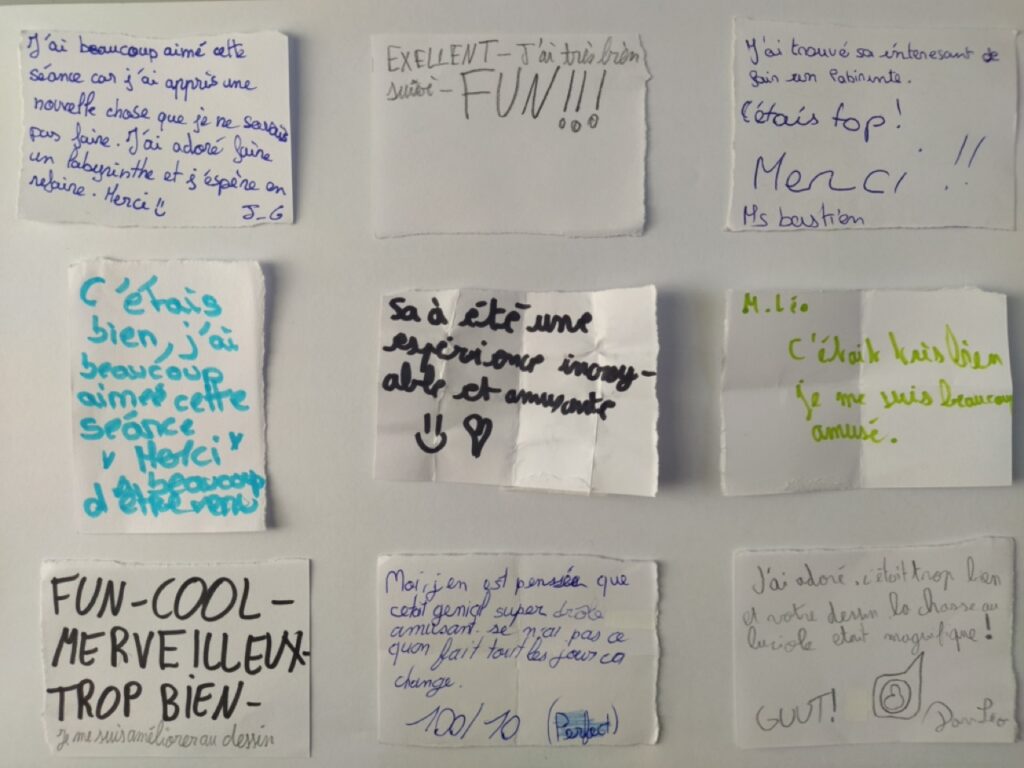 J'ai beaucoup aimé cette
séance car j'ai appris une
nouvelle chose que je ne savais
pas faire. J'ai adoré faire
un labyrinthe et j'espère en
refaire. Merci
J_G
EXELLENT - J'ai très bien
suivi - FUN!!!
J'ai trouvé sa intenesant de
fair un labirinte.
C'étais top!
Merci !!
Ms bastien
C'étais
bien, j'ai
beaucoup
aimer cette
séance
Merci
beaucoup
d'être venu
Sa à été une
expérience
able et amusante
M. Léo
C'était très bien
je me suis beaucoup
amusé.
FUN-COOL-
MERVEILLEUX-
TROP BIEN-
Je me suis améliorer au dessin
Moi, j'en est pensée que
cetait genial super drole
amusant. se n'ai pas ce
quon fait tout les jour ca
change.
100/10 (Perfect)
J'ai adoré, c'était trop bien
et votre dessin la chasse au
luciole etait magnifique!
GUUT!